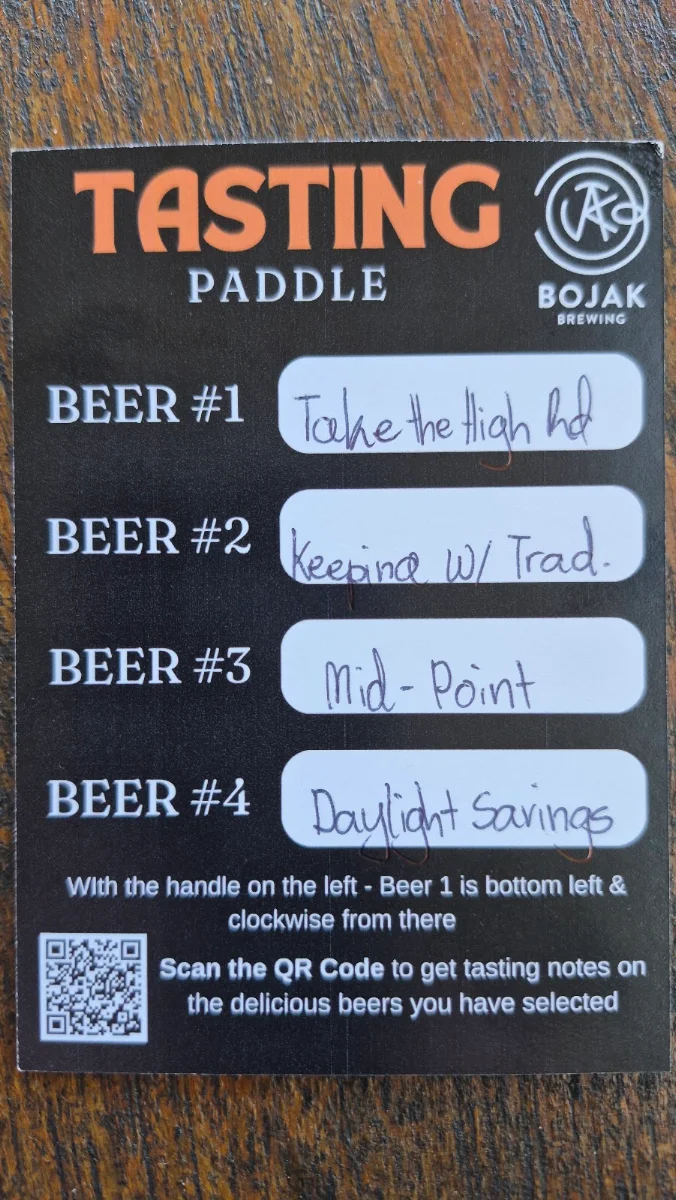 TASTING
PADDLE
BOJAK
BREWING
BEER #1 Take the High Rd
BEER #2 Keeping W/ Trad.
BEER #3 Mid-Point
BEER #4 Daylight Savings
WIth the handle on the left - Beer 1 is bottom left &
clockwise from there
Scan the QR Code to get tasting notes on
the delicious beers you have selected